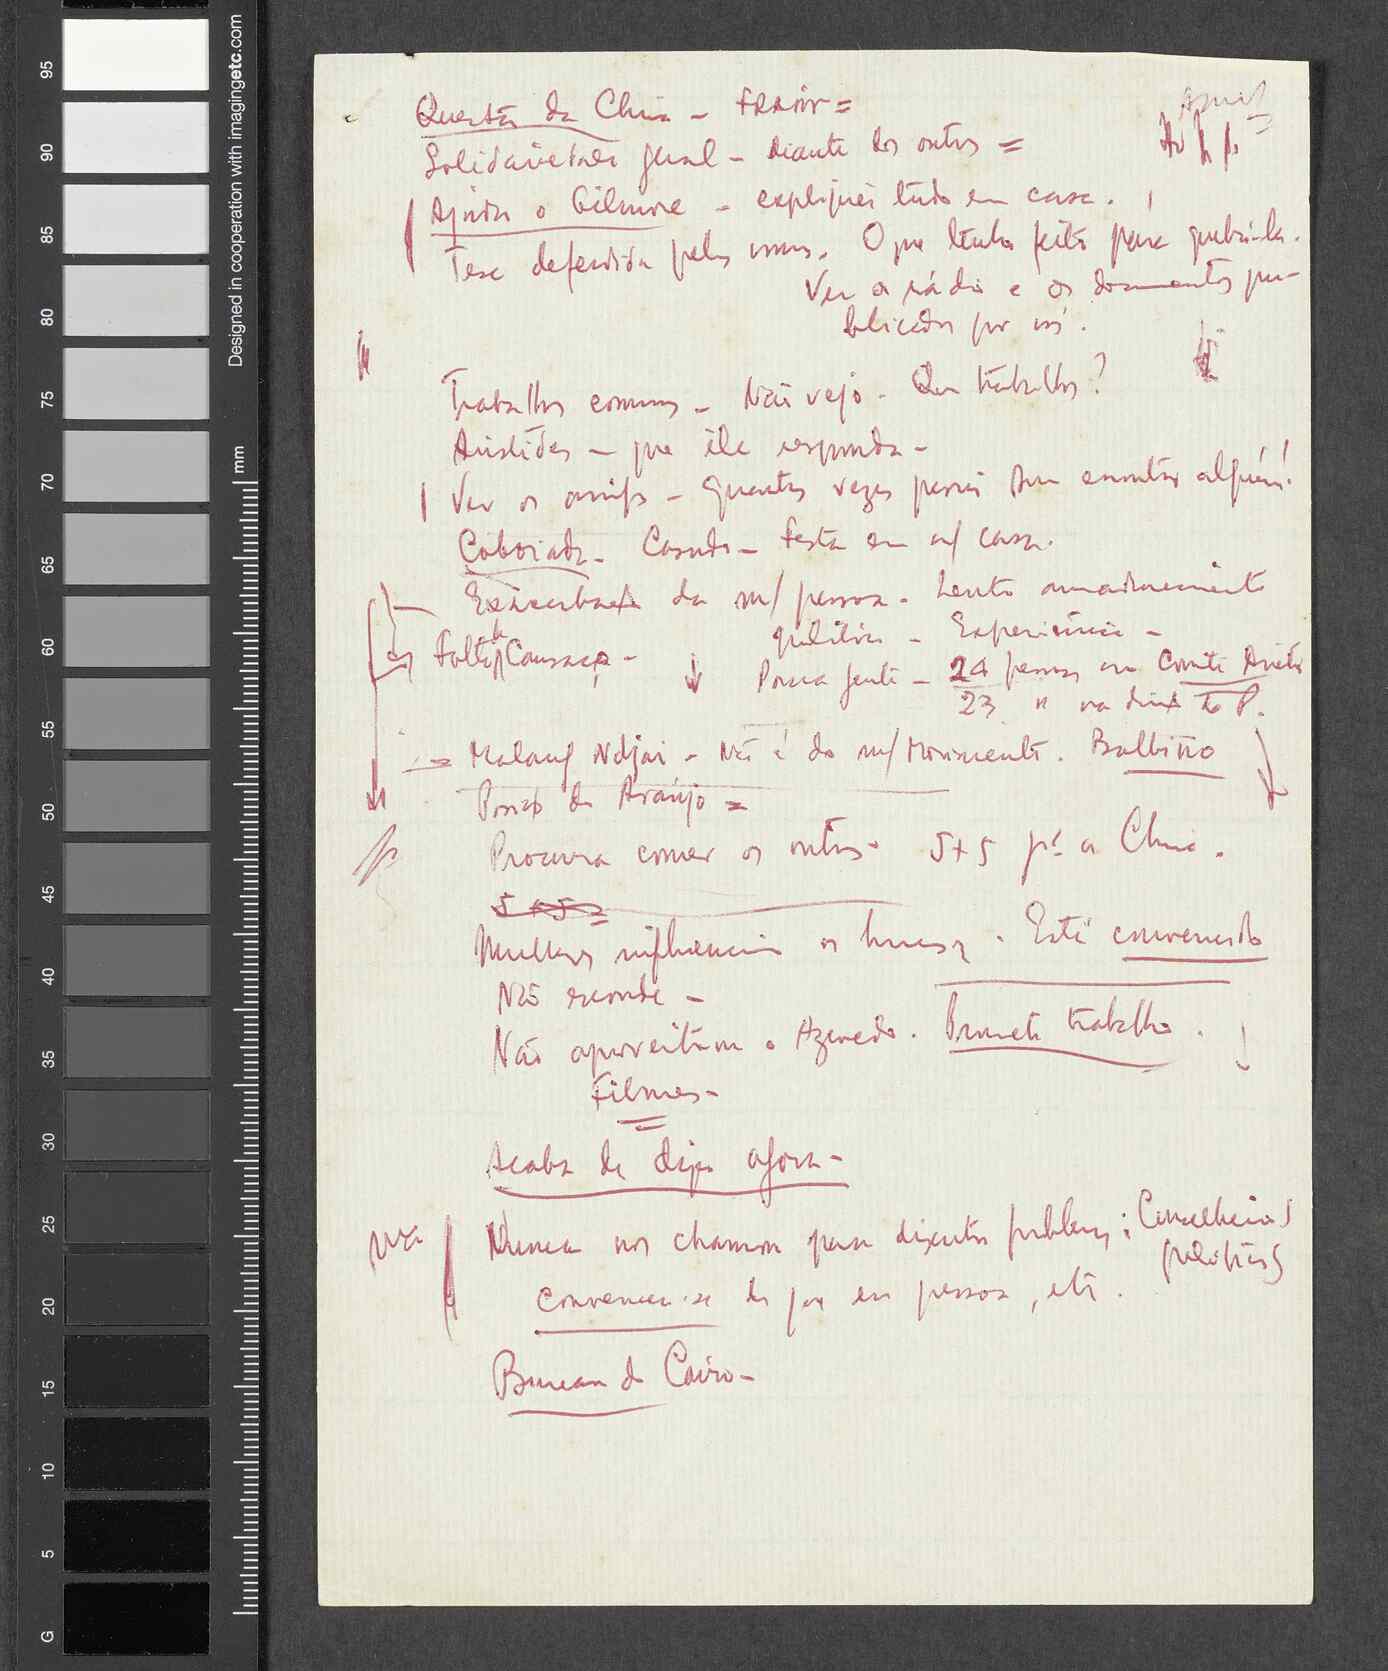 Questão da China - FRAIN =
Solidariedade geral - diante dos outros =
Ajuda o Gilmore - expliquei tudo em casa.
Tese defendida pelos meus. O que tenho feito para quebrá-la.
Ver a rádio e os documentos pu-
blicados por nós.
Trabalhos comuns - Não vejo. Que trabalhos?
Aristides - que ele responda -
Ver os amigos - Quantas vezes passei sem encontrar alguém!
Coboiada - Casado - festa em m/ casa.
Exacerbação da m/ pessoa. Lento amadurecimento
político - Experiência -
Falta de
Pouca gente - 24 pessoas no Comité Director
23 " na dir. do P.
Malang Ndjai - Não é do m/ Movimento. Balbino
de Araújo =
Procura comer os outros. 5+5 pª a China.
5+5=
Mulheres influenciam os homens. Está convencido
Não esconde -
Não aproveitam o Azevedo. Promete trabalho.
Filmes -
Acaba de dizer agora -
Nunca nos chamam para discutir problemas; Conselheiros
políticos
convencer-se de que em pessoa, etc.
Bureau do Cairo -
95
90
85
80
75
70
65
60
55
50
45
40
35
30
25
20
15
10
5
G
mm
Designed in cooperation with imagingetc.com